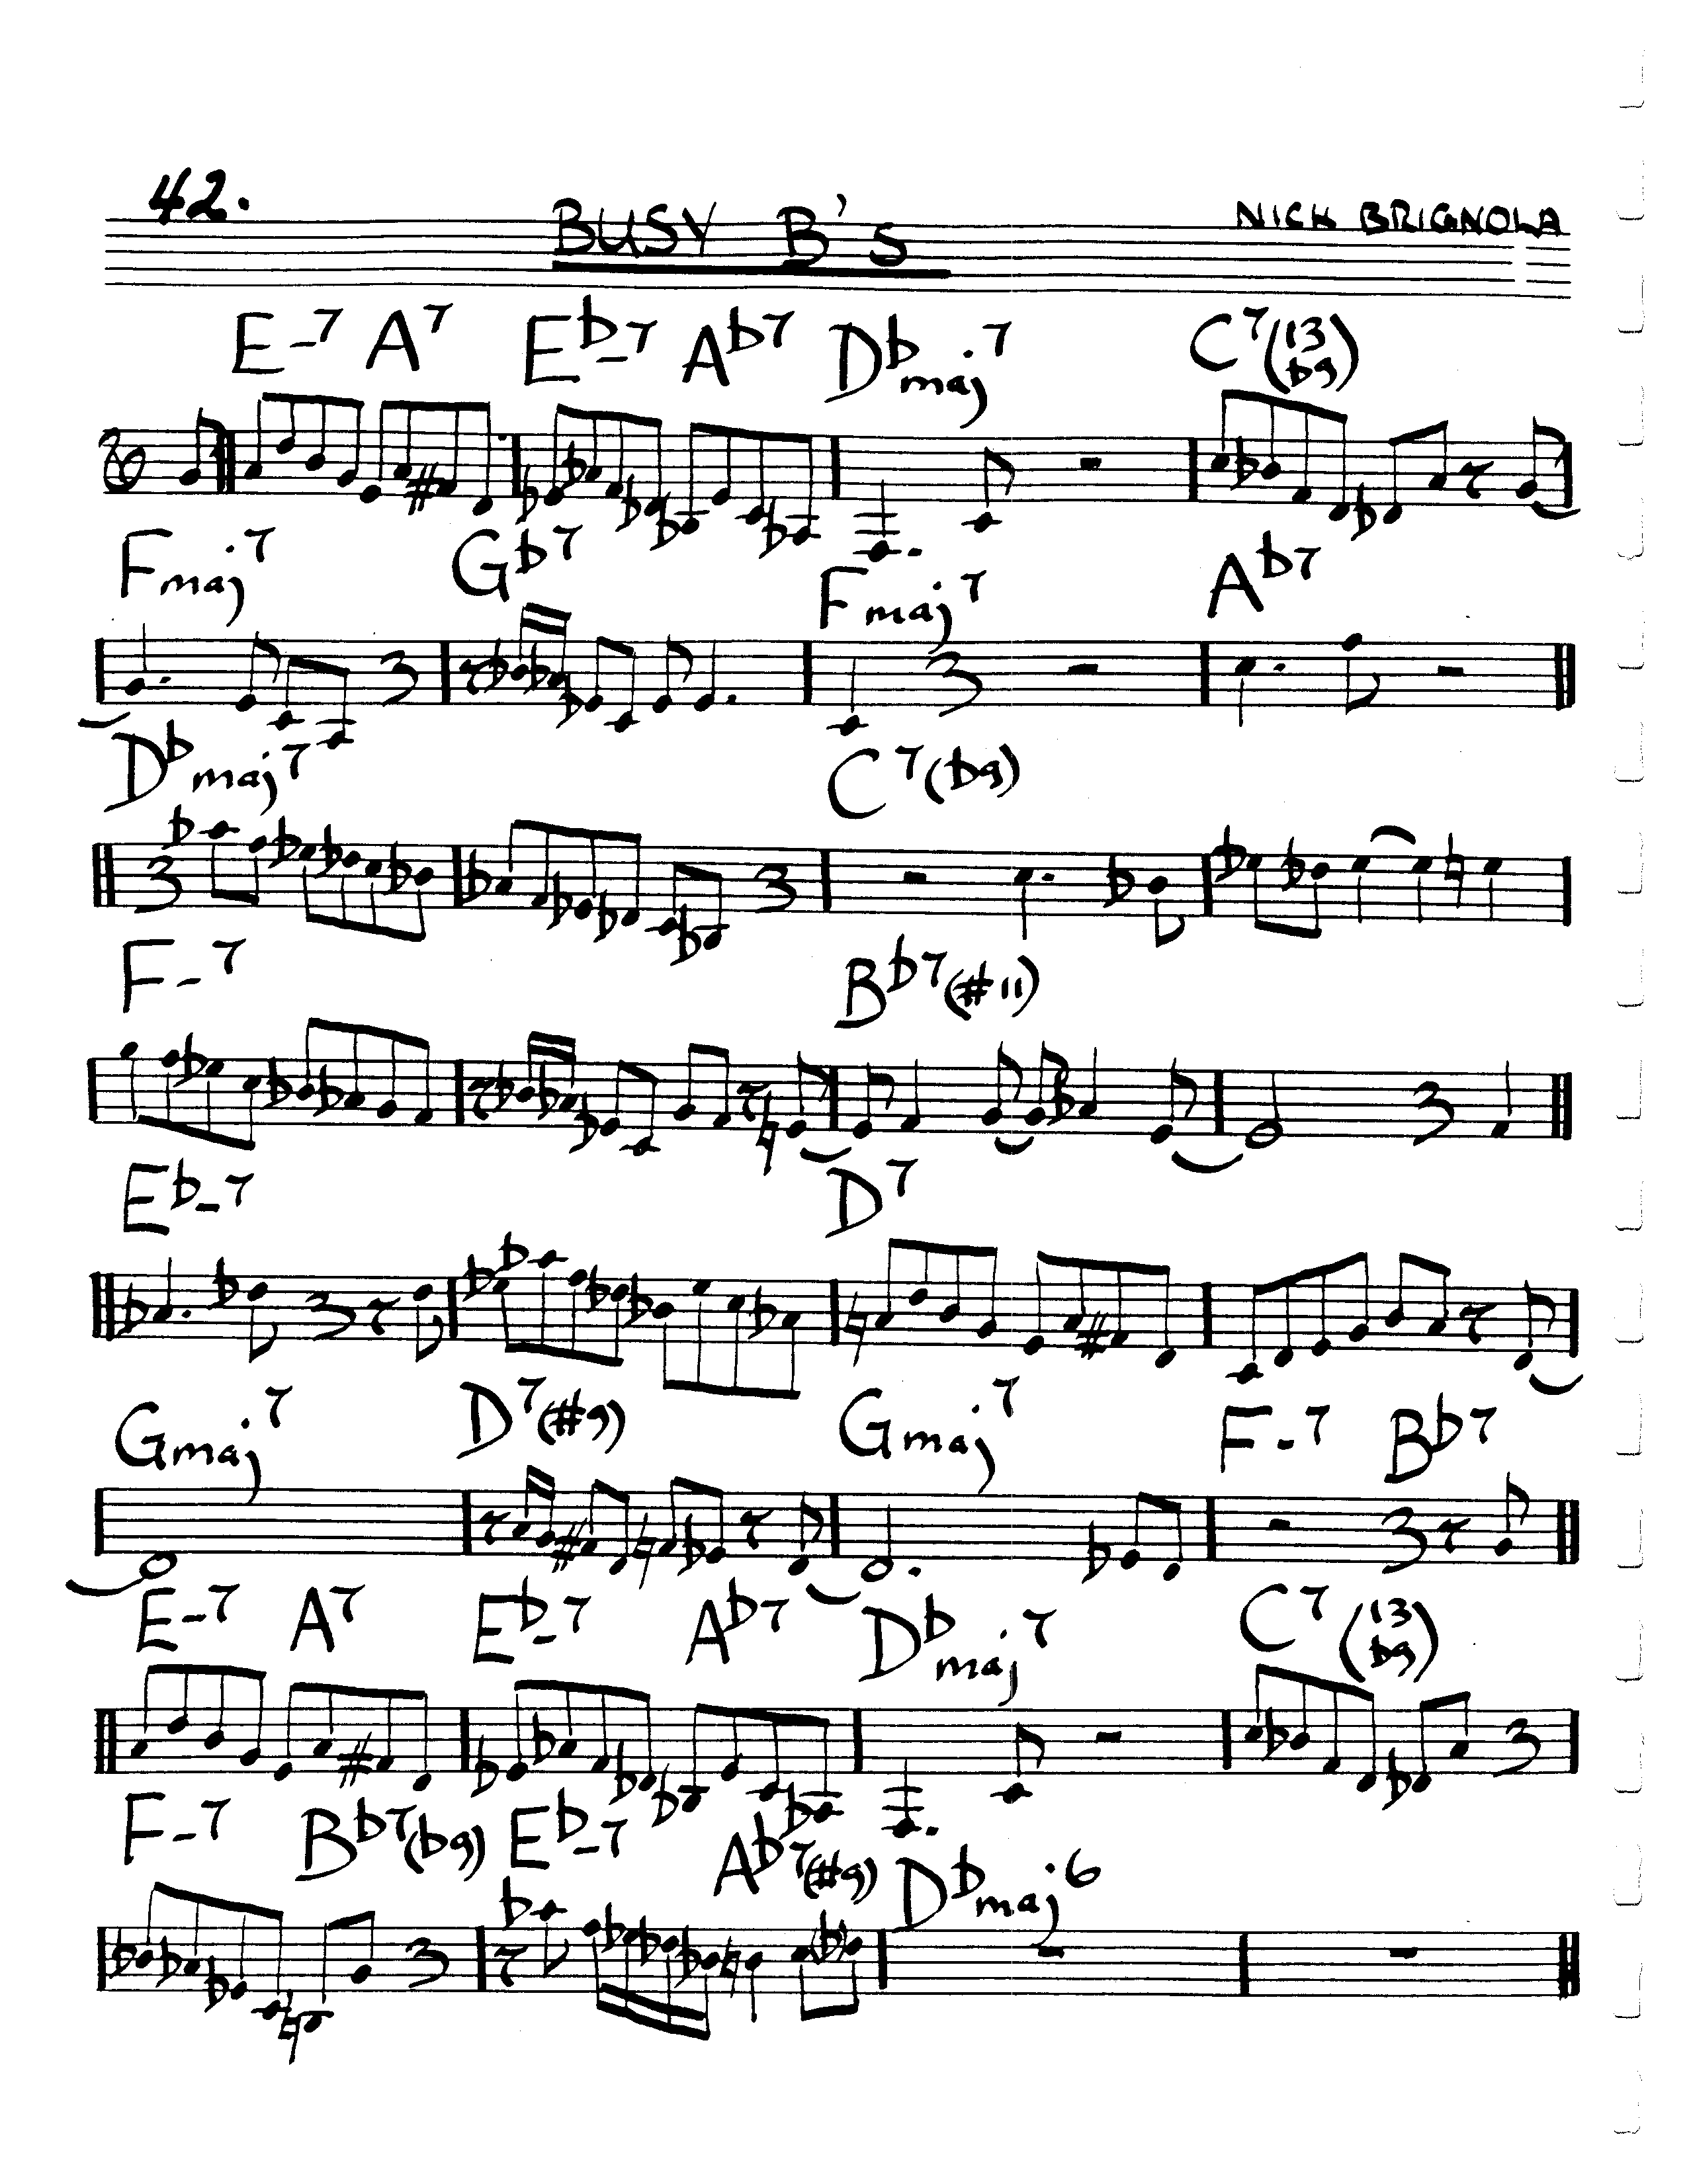 42.
BUSY B's
NICK BRIGNOLA
E-7 A7 Eb-7 Ab7 Dbmaj7 C7(13 b9)
Fmaj7 Gb7 Fmaj7 Ab7
Dbmaj7 C7(b9)
F-7 Bb7(#11)
Eb-7 D7
Gmaj7 D7(#9) Gmaj7 F-7 Bb7
E-7 A7 Eb-7 Ab7 Dbmaj7 C7(13 b9)
F-7 Bb7(b9) Eb-7 Ab7(#9) Dbmaj6